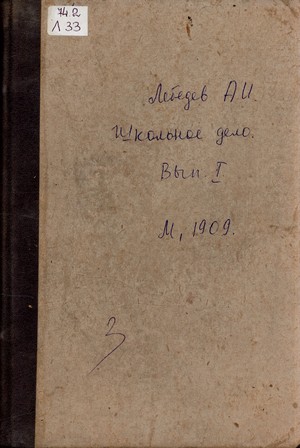 74.2
Л 33
Лебедев А.И.
Школьное дело.
Вып. I.
М, 1909.
З